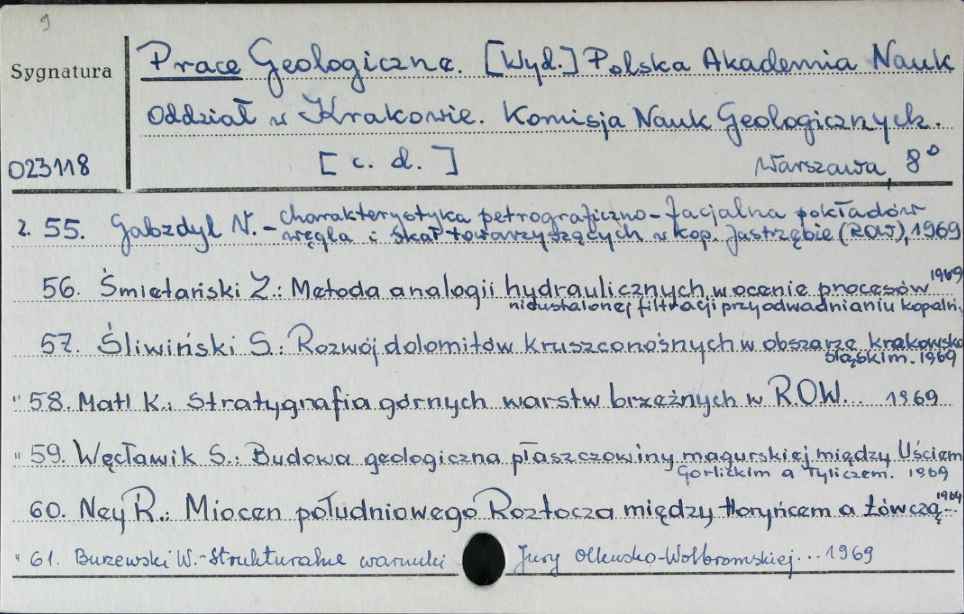 9
Prace Geologiczne. [Wyd.] Polska Akademia Nauk
Sygnatura
Oddział w Krakowie. Komisja Nauk Geologicznych.
023118
[c. d.] Warszawa, 8°
z. 55. Gabzdyl W. - Charakterystyka petrograficzno-facjalna pokładów
węgla i skał towarzyszących w kop. Jastrzębie (ROW), 1969
56. Śmietański Z.: Metoda analogii hydraulicznych w ocenie procesów 1969
nieustalonej filtracji przy odwadnianiu kopalni.
57. Śliwiński S.: Rozwój dolomitów kruszconośnych w obszarze krakowsko
śląskim. 1969
" 58. Matl K.: Stratygrafia górnych warstw brzeżnych w R.O.W... 1969
" 59. Węcławik S.: Budowa geologiczna płaszczowiny magurskiej między Uściem
Gorlickim a Tyliczem. 1969
60. Ney R.: Miocen południowego Roztocza między Horyńcem a Łówczą... 1969
" 61. Burzewski W. - Strukturalne warunki Jury Olkusko-Wolbromskiej... 1969